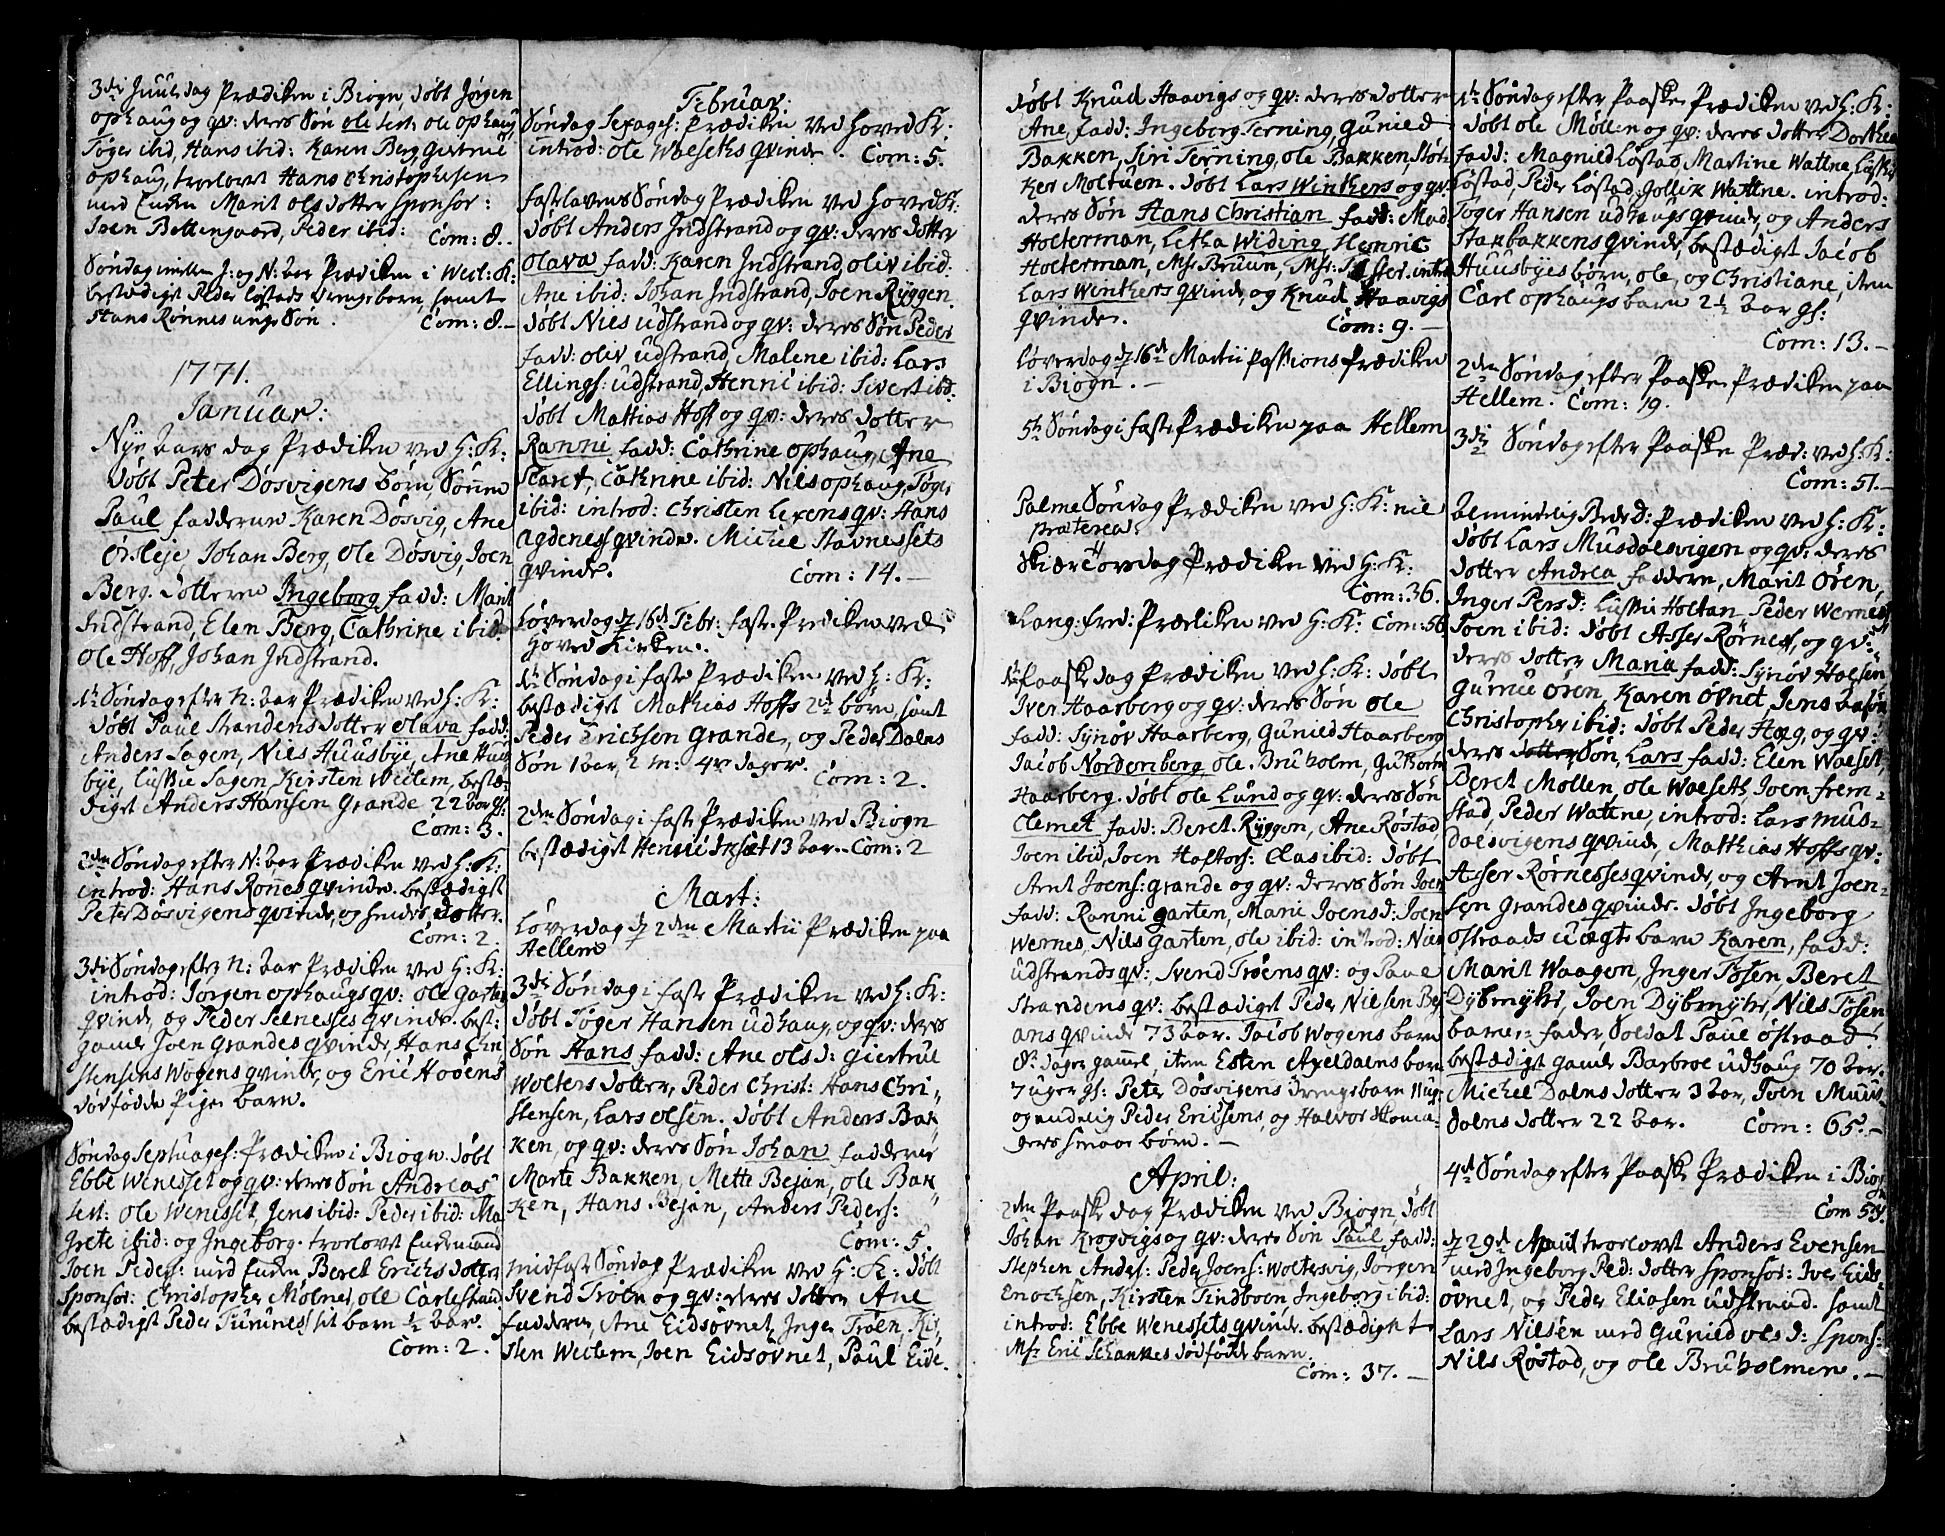 3die Juuledag Prædiken i Biogn, døbt Jørgen
ophaug og qv: deres Søn ole test: ole ophaug
Tøger ibid, Hans ibid: Karen Berg, Giertrue
ophaug, trolovet Hans Christophersen
med Enken Marit olsdotter sponsor:
Joen Bottengaard, Peder ibid:
Com: 8.
Søndag imellem J: og N: aar Prædiken i Westl: K:
bestædiget Peder løstads drengebarn, samt
Hans Rønnes unge Søn.
Com: 8.
1771.
Januar:
Nye aars dag Prædiken ved H: K:
døbt Peter Døsvigens børn, Sønnen
Paul fadderne Karen Døsvig, Ane
Ørsleje, Johan Berg, Ole Døsvig, Joen
Berg. dotteren Ingeborg fadd: Marit
Indstrand, Elen Berg, Cathrine ibid.
Ole Hoff, Johan Indstrand.
1te Søndag efter N: aar Prædiken ved H: K:
døbt Paul Strandens dotter olava fadd:
Anders Sagen, Niels Huusbye, Ane Huus
bye, Lissie Sagen, Kirsten Weilem, bestæ-
diget Anders Hansen Grande 22 aar gl:
Com: 3.
2den Søndag efter N: aar Prædiken ved H: K:
introd: Hans Rønnes qvinde. bestædiget
Peter Døsvigens qvinde, og hendes dotter.
Com: 2.
3die Søndag efter N: aar Prædiken ved H: K:
introd: Jørgen ophaugs qv: ole Garten
qvinde og Peder Selnesses qvinde. best:
gamle Joen Grandes qvinde, Hans Cri
stensens Wogens qvinde, og Eric Hoøens
dødfødde Pige barn.
Søndag Septuages: Prædiken i Biogn. døbt
Ebbe Wenesset og qv: deres Søn Andreas
test: ole Wenesset, Jens ibid: Peder ibid: Ma
Grete ibid: og Ingeborg. trolovet Enkemand
Joen Peders: med Enken Beret Erichsdotter
sponsor: Christopher Molnes, ole Carlestrand
bestædiget Peder Tununesset barn ½ aar.
Com: 2.
Februar:
Søndag Sexages: Prædiken ved Hoved K:
introd: ole Woeseths qvinde. Com: 5.
Fastelavens Søndag Prædiken ved Hoved K:
døbt Anders Indstrand og qv: deres dotter
Olava fadd: Karen Indstrand, oliv ibid:
Ane ibid: Johan Indstrand, Joen Ryggen.
døbt Niels udstrand og qv: deres Søn Peder
fadd: oliv udstrand, Malene ibid: Lars
Ellings: udstrand, Henric ibid: Sivert ibid.
døbt Mattias Hoff og qv: deres dotter
Ranni fadd: Cathrine ophaug, Ane
Cathrine ibid: Nils ophaug, Tøger
ibid: introd: Christen Lexens qv: Hans
agdeness qvinde. Michel Stavnessets
qvinde. Com: 14.
Løverdag d 16d Febr: faste Prædiken ved
Hoved Kirken.
1te Søndag i faste Prædiken ved H: K:
bestædiget Mathias Hoffs børn, samt
Peder Erichsen Grande, og Peder Dalens
Søn 1 aar, 2 m: 4r dager.
Com: 2.
2den Søndag i faste Prædiken ved Biogn
bestædiget Henric 13 aar. Com: 2
Mart:
Løverdag d 2den Martii Prædiken paa
Hellem
3die Søndag i faste Prædiken ved H: K:
døbt Tøger Hansen udhaug, og qv: deres
Søn Hans fadd: Ane ols d: Giertrue
Wolters dotter, Peder Christ: Hans Chri-
stensen, Lars olsen. døbt Anders Bak-
ken, og qv: deres Søn Johan fadderne
Marte Bakken, Mette Bejan, ole Bak-
ken, Hans Bejan, Anders Peders:
Com: 5.
midfaste Søndag Prædiken ved H: K: døbt
Svend Troen og qv: deres dotter Ane
fadderne, Ane Eidsøvnet, Inger Troen, Kir-
sten Weilem, Joen Eidsøvnet, Paul Eide.
døbt Knud Haavigs og qv: deres dotter
Ane, fadd: Ingeborg Terning, Gunild
Bakken, Siri Terning, ole Bakken, Støt-
ker Moltuen. døbt Lars Winthers og qv:
deres Søn Hans Christian fadd: Mad
Holterman, Letha Widing Henric
Holterman, Mr Bruun, introd
Lars Winthers qvinde, og Knud Haavigs
qvinde. Com: 9.
Løverdag d 16d Martii passions Prædiken
i Biogn.
5te Søndag i faste Prædiken paa Hellem
Palme Søndag Prædiken ved H: K: nil
præterea.
Skiær Torsdag Prædiken ved H: K:
Com: 36.
Lang: fred: Prædiken ved H: K: Com: 56
1te Paaske dag Prædiken ved H: K: døbt
Iver Haarberg og qv: deres Søn ole
fadd: Synøv Haarberg, Gunild Haarberg
Jacob Nordenberg ole Bruholm, Guttorm
Haarberg. døbt ole Lund og qv: deres Søn
Clemet fadd: Beret Ryggen, Ane Røstad
Joen ibid, Joen Hoftors: Clas ibid: døbt
Arnt Joens: Grande og qv: deres Søn Joen
fadd: Ranni Garten, Mari Joensd: Joen
Wernes, Nils Garten, ole ibid: introd: Niels
udstrands qv: Svend Trøens qv: og Paul
Strandens qv: bestædiget Peder Nielsen Bej
ans qvinde 73 aar. Jacob Wogens barn
8te dager gammel, item Esten Axeldalens barn
7 uger gl: Peter Døsvigens drengebarn
og endelig Peder Ericsens, og Halvor Skoma-
gers smaae børn.
April:
2den Paaske dag Prædiken ved Biogn, døbt
Johan Krogvigs og qv: deres Søn Paul fadd:
Stephen Anders: Peder Joens: Woltersvig, Jørgen
Enochsen, Kirsten Tindboen Ingeborg ibid:
introd: Ebbe Wenessets qvinde. bestædiget
Mr Eric Schannes dødfødde barn.
Com: 37.
1te Søndag efter Paaske Prædiken ved H: K:
døbt ole Møllen og qv: deres dotter Dorthea
fadd: Magnild Løstad, Martine Wattne,
Løstad, Peder Løstad, Jollik Wattne. introd:
Tøger Hansen udhaugs qvinde, og Anders
Stakbakkens qvinde, bestædiget Jacob
Huusbyes børn, ole, og Christiane, item
Carl ophaugs barn 2½ aar gl:
Com: 13.
2den Søndag efter Paaske Prædiken paa
Hellem. Com: 19.
3die Søndag efter Paaske Præd: ved H: K:
Com: 51.
Almindelig Bede d: Prædiken ved H: K:
døbt Lars Musdalsvigen og qv: deres
dotter Andrea fadderne, Marit Øren,
Inger Persd: Lissie Holtan Peder Wernes,
Joen ibid: døbt Asser Rørness, og qv:
deres dotter Maria fadd: Synøv Holsen
Gurrue Øren, Karen Øvnet, Jens
Christopher ibid: døbt Peder Hæg, og qv:
deres dotter Søn, Lars fadd: Elen Woeset,
Beret Mollen, ole Woeseth, Joen frem-
stad, Peder Wattne, introd: Lars Mus-
dalsvigens qvinde, Matthias Hoffs qv:
Asser Rørnesses qvinde, og Arnt Joen-
sen Grandes qvinde. døbt Ingeborg
Østraads uægte barn Karen, fadd:
Marit Waagen, Inger Posen Beret
Dybmyhr, Joen Dybmyhr, Niels Posen
barne-fader, Soldat Paul Østraad
bestædiget gamle Barbroe udhaug 70 aar.
Michel Dalens dotter 3 aar, Joen Muus-
dalens dotter 22 aar. Com: 65.
4de Søndag efter Paaske Prædiken i Biogn
Com 54.
d 29d April trolovet Anders Evensen
med Ingeborg Ped: dotter sponsor: Iver Eids
øvnet, og Peder Eliasen udstrand. samt
Lars Nilsen med Gunild ols d: spons:
Nils Røstad, og ole Bruholmen.